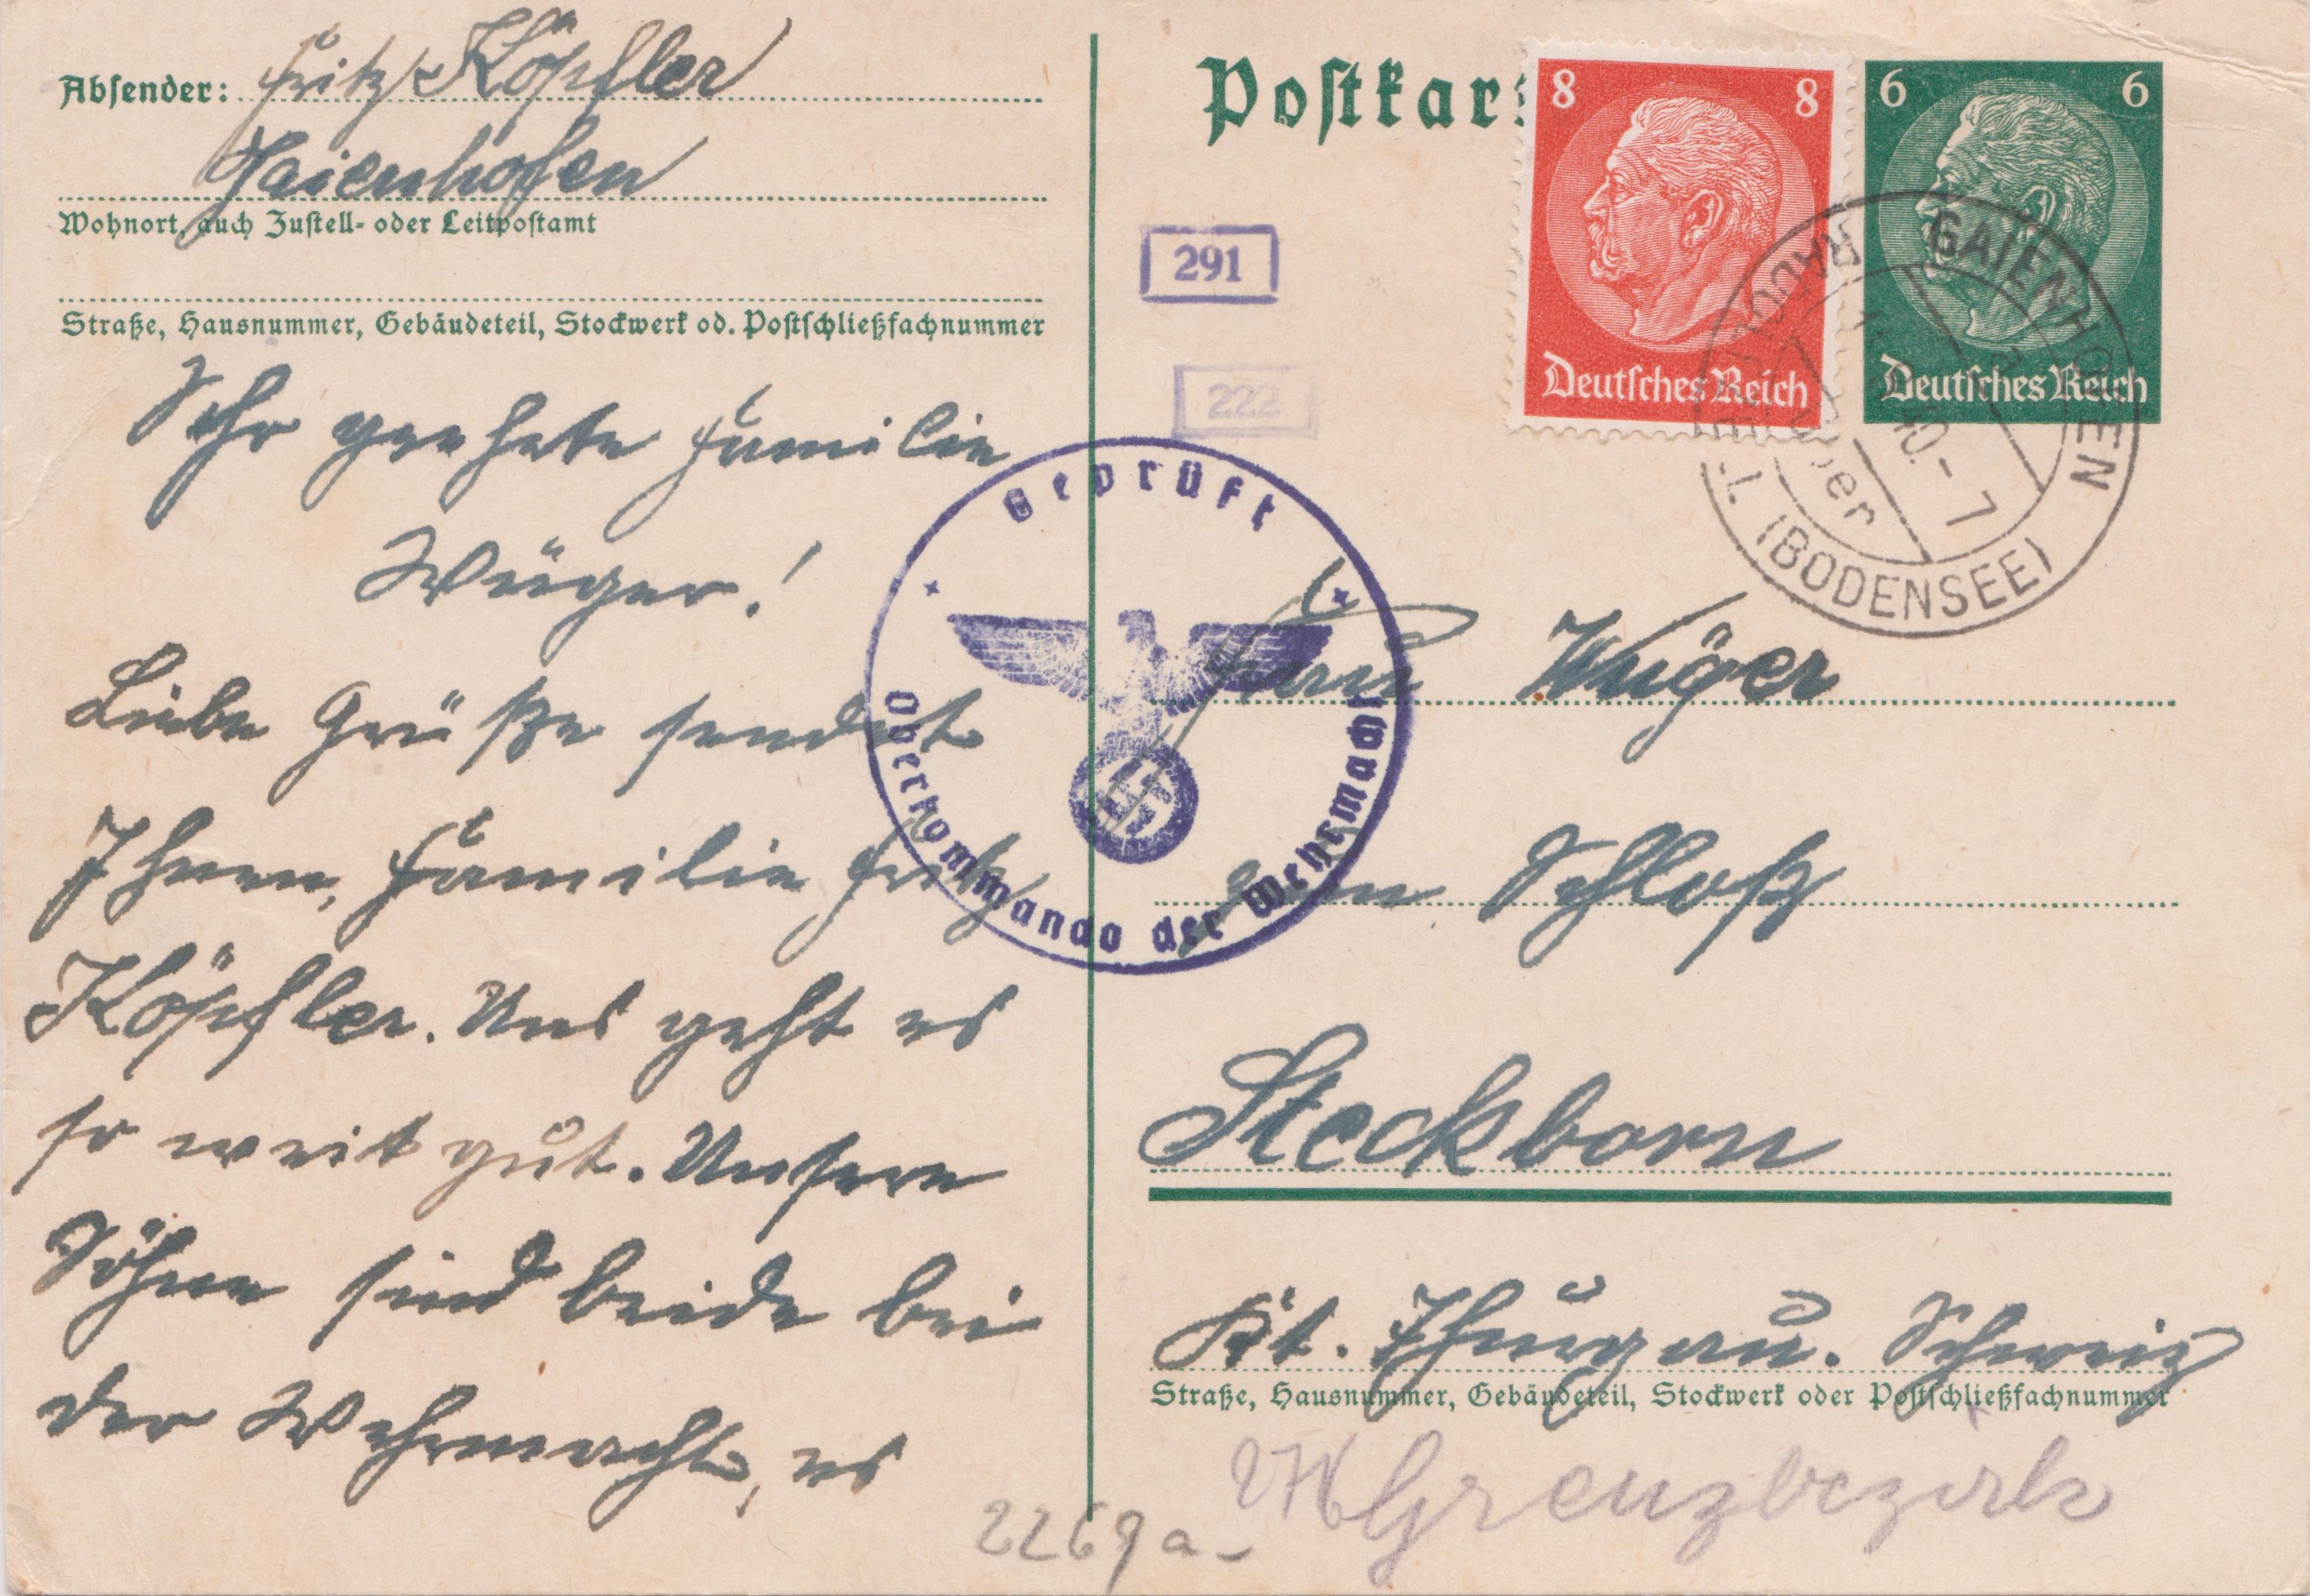 Absender: Fritz Köpfler
Gaienhofen
Wohnort, auch Zustell- oder Leitpostamt
Straße, Hausnummer, Gebäudeteil, Stockwerk od. Postschließfachnummer
Sehr geehrte Familie
Wüger!
Liebe Grüße sendet
Ihnen, Familie Fritz
Köpfler. Uns geht es
so weit gut. Unsere
Söhne sind beide bei
der Wehrmacht, es
2269a-
Postkar
8 8
Deutsches Reich
6 6
Deutsches Reich
GAIENHOFEN
(BODENSEE)
291
222
Geprüft
Oberkommando der Wehrmacht
Wüger
zum Schloß
Steckborn
Kt. Thurgau. Schweiz
Straße, Hausnummer, Gebäudeteil, Stockwerk oder Postschließfachnummer
Grenzbezirk